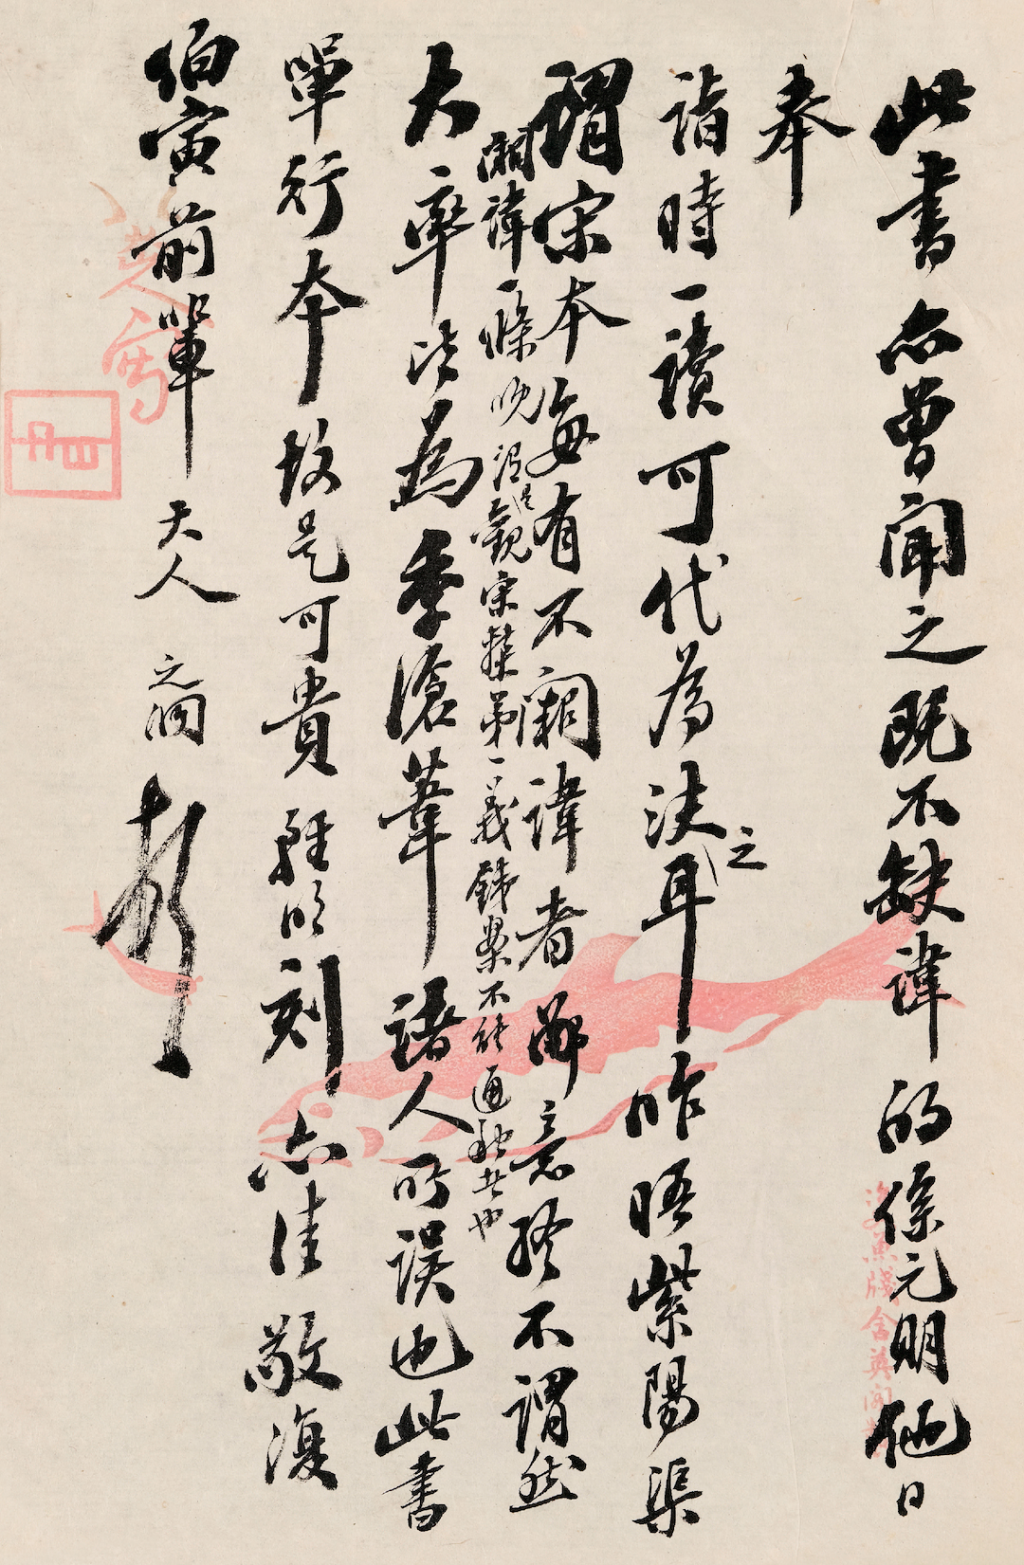 此書亦曾聞之既不缺諱的係元明他日
奉
詣時一讀可代為決之耳昨晤紫陽渠
謂宋本每有不闕諱者鄙意殊不謂然
闕諱一條觀宋槧弟一義鐵案不能通融者也
大率皆為季滄葦諸人所誤也此書
單行本故是可貴雖明刻亦佳敬復
伯寅前輩大人 之洞